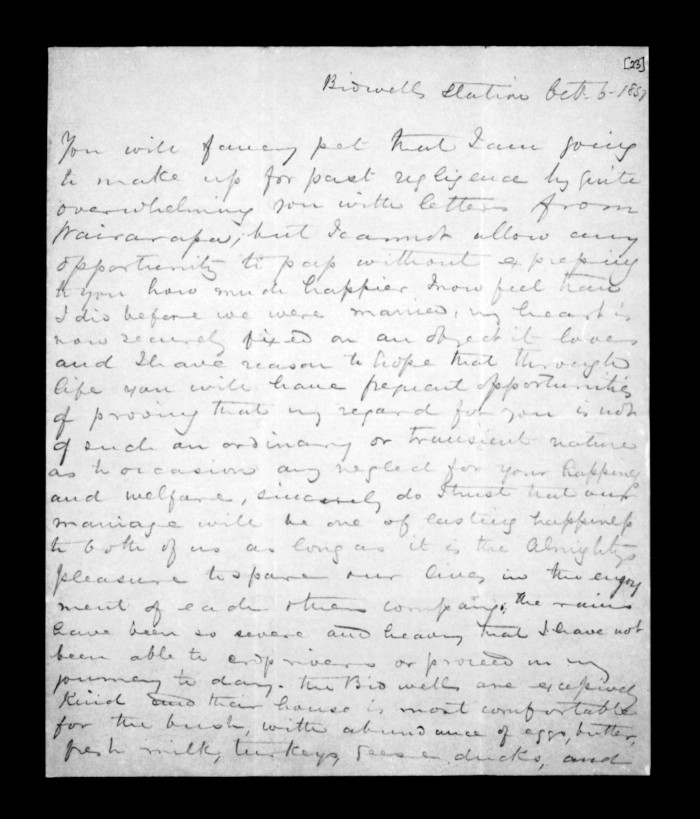 [23]
Bidwells Station Oct 6 1857
You will fancy pet that I am going
to make up for past negligence by quite
overwhelming you with letters from
Wairarapa, but I cannot allow any
opportunity to pass without expressing
to you how much happier I now feel than
I did before we were married, my heart is
now securely fixed on an object it loves
and I have reason to hope that through
life you will have frequent opportunities
of proving that my regard for you is not
of such an ordinary or transient nature
as to occasion any neglect for your happiness
and welfare, sincerely do I trust that our
marriage will be one of lasting happiness
to both of us as long as it is the Almightys
pleasure to spare our lives in the enjoy
ment of each others company, the rains
have been so severe and heavy that I have not
been able to cross rivers or proceed in my
journey to day. the Bidwells are excessively
kind and their house is most comfortable
for the bush, with abundance of eggs, butter,
fresh milk, turkeys, geese ducks, and